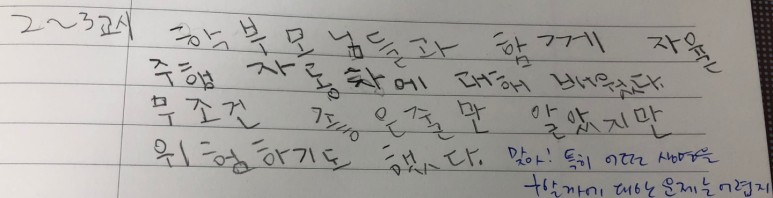 2~3교시 학부모님들과 함께 자율
주행 자동차에 대해 배웠다.
무조건 좋은줄만 알았지만
위험하기도 했다. 맞아! 특히 어떤 생명을
구할까에 대한 문제는 어렵지